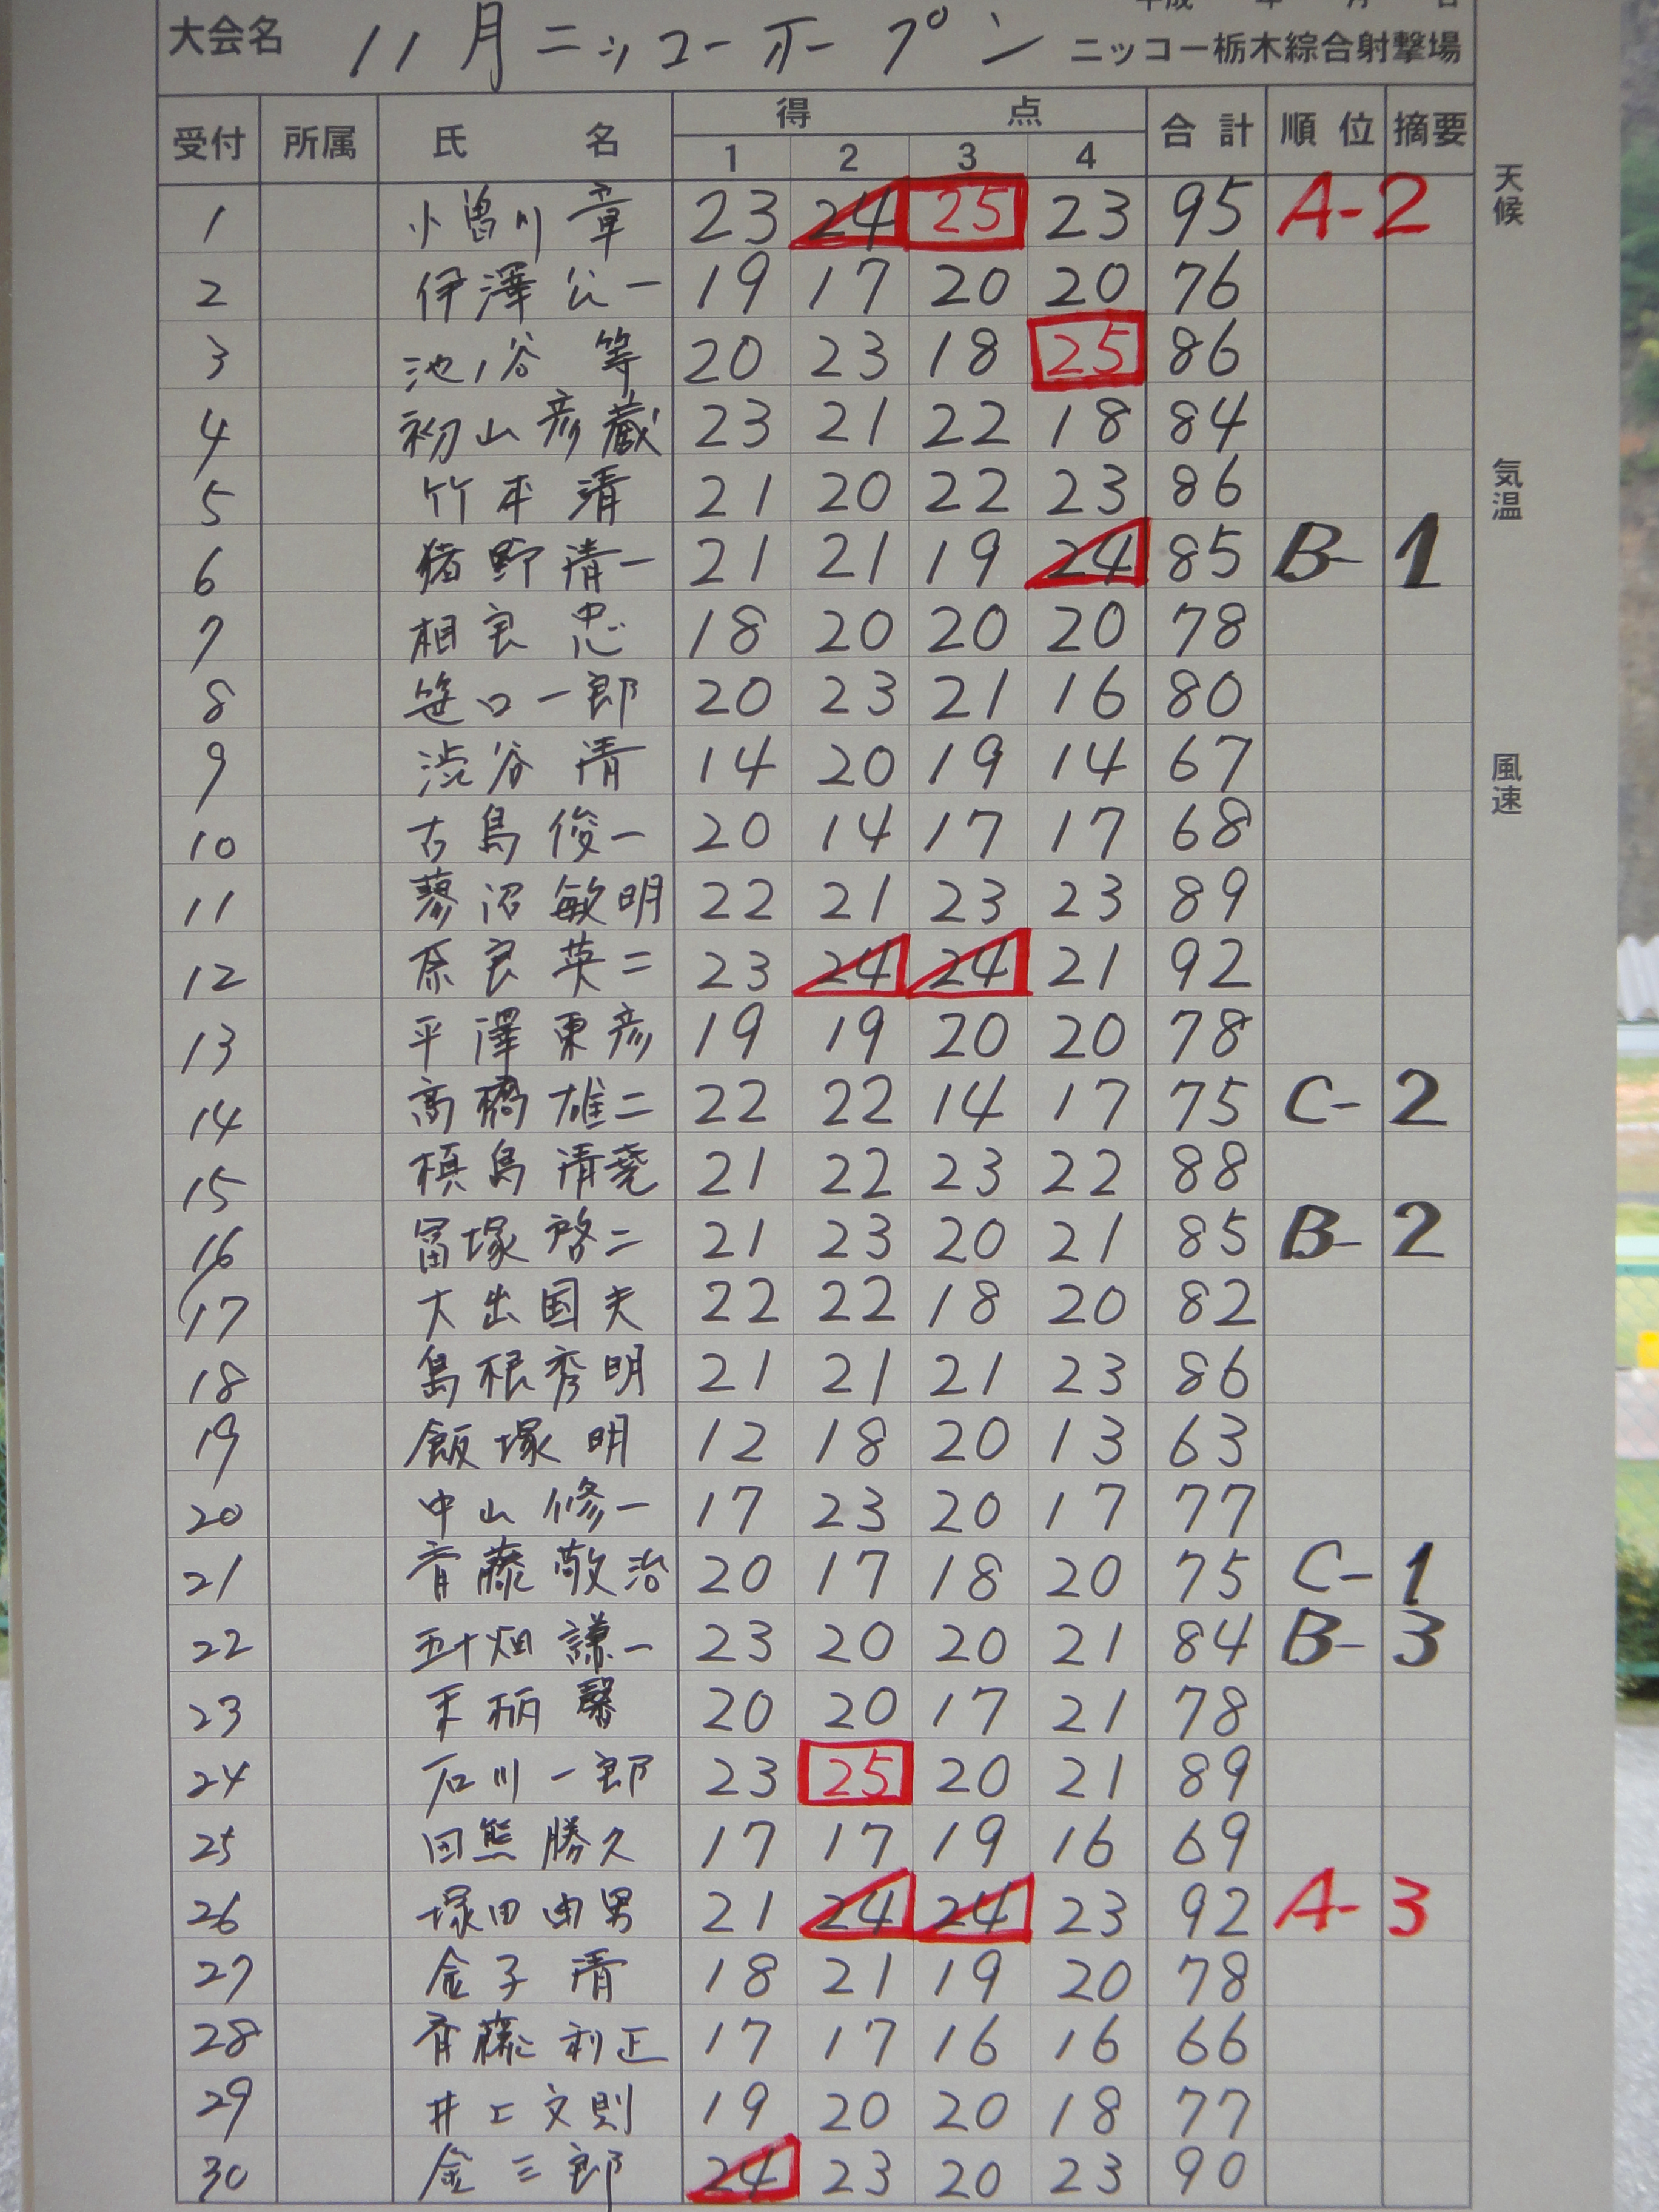 大会名 11月ニッコーオープン ニッコー栃木綜合射撃場
受付 所属 氏名 得点 合計 順位 摘要
1 2 3 4
1 小曽川 章 23 24 25 23 95 A-2
2 伊澤公一 19 17 20 20 76
3 池ノ谷 等 20 23 18 25 86
4 初山彦蔵 23 21 22 18 84
5 竹本 清 21 20 22 23 86
6 猪野清一 21 21 19 24 85 B-1
7 相良 忠 18 20 20 20 78
8 笹口一郎 20 23 21 16 80
9 渋谷 清 14 20 19 14 67
10 古島俊一 20 14 17 17 68
11 蓼沼敏明 22 21 23 23 89
12 奈良英二 23 24 24 21 92
13 平澤東彦 19 19 20 20 78
14 高橋雄二 22 22 14 17 75 C-2
15 槙島清尭 21 22 23 22 88
16 冨塚啓二 21 23 20 21 85 B-2
17 大出国夫 22 22 18 20 82
18 島根秀明 21 21 21 23 86
19 飯塚 明 12 18 20 13 63
20 中山修一 17 23 20 17 77
21 斉藤敬治 20 17 18 20 75 C-1
22 五十畑謙一 23 20 20 21 84 B-3
23 柄 馨 20 20 17 21 78
24 石川一郎 23 25 20 21 89
25 田熊勝久 17 17 19 16 69
26 塚田由男 21 24 24 23 92 A-3
27 金子 清 18 21 19 20 78
28 斉藤利正 17 17 16 16 66
29 井上文則 19 20 20 18 77
30 金三郎 24 23 20 23 90
天候
気温
風速